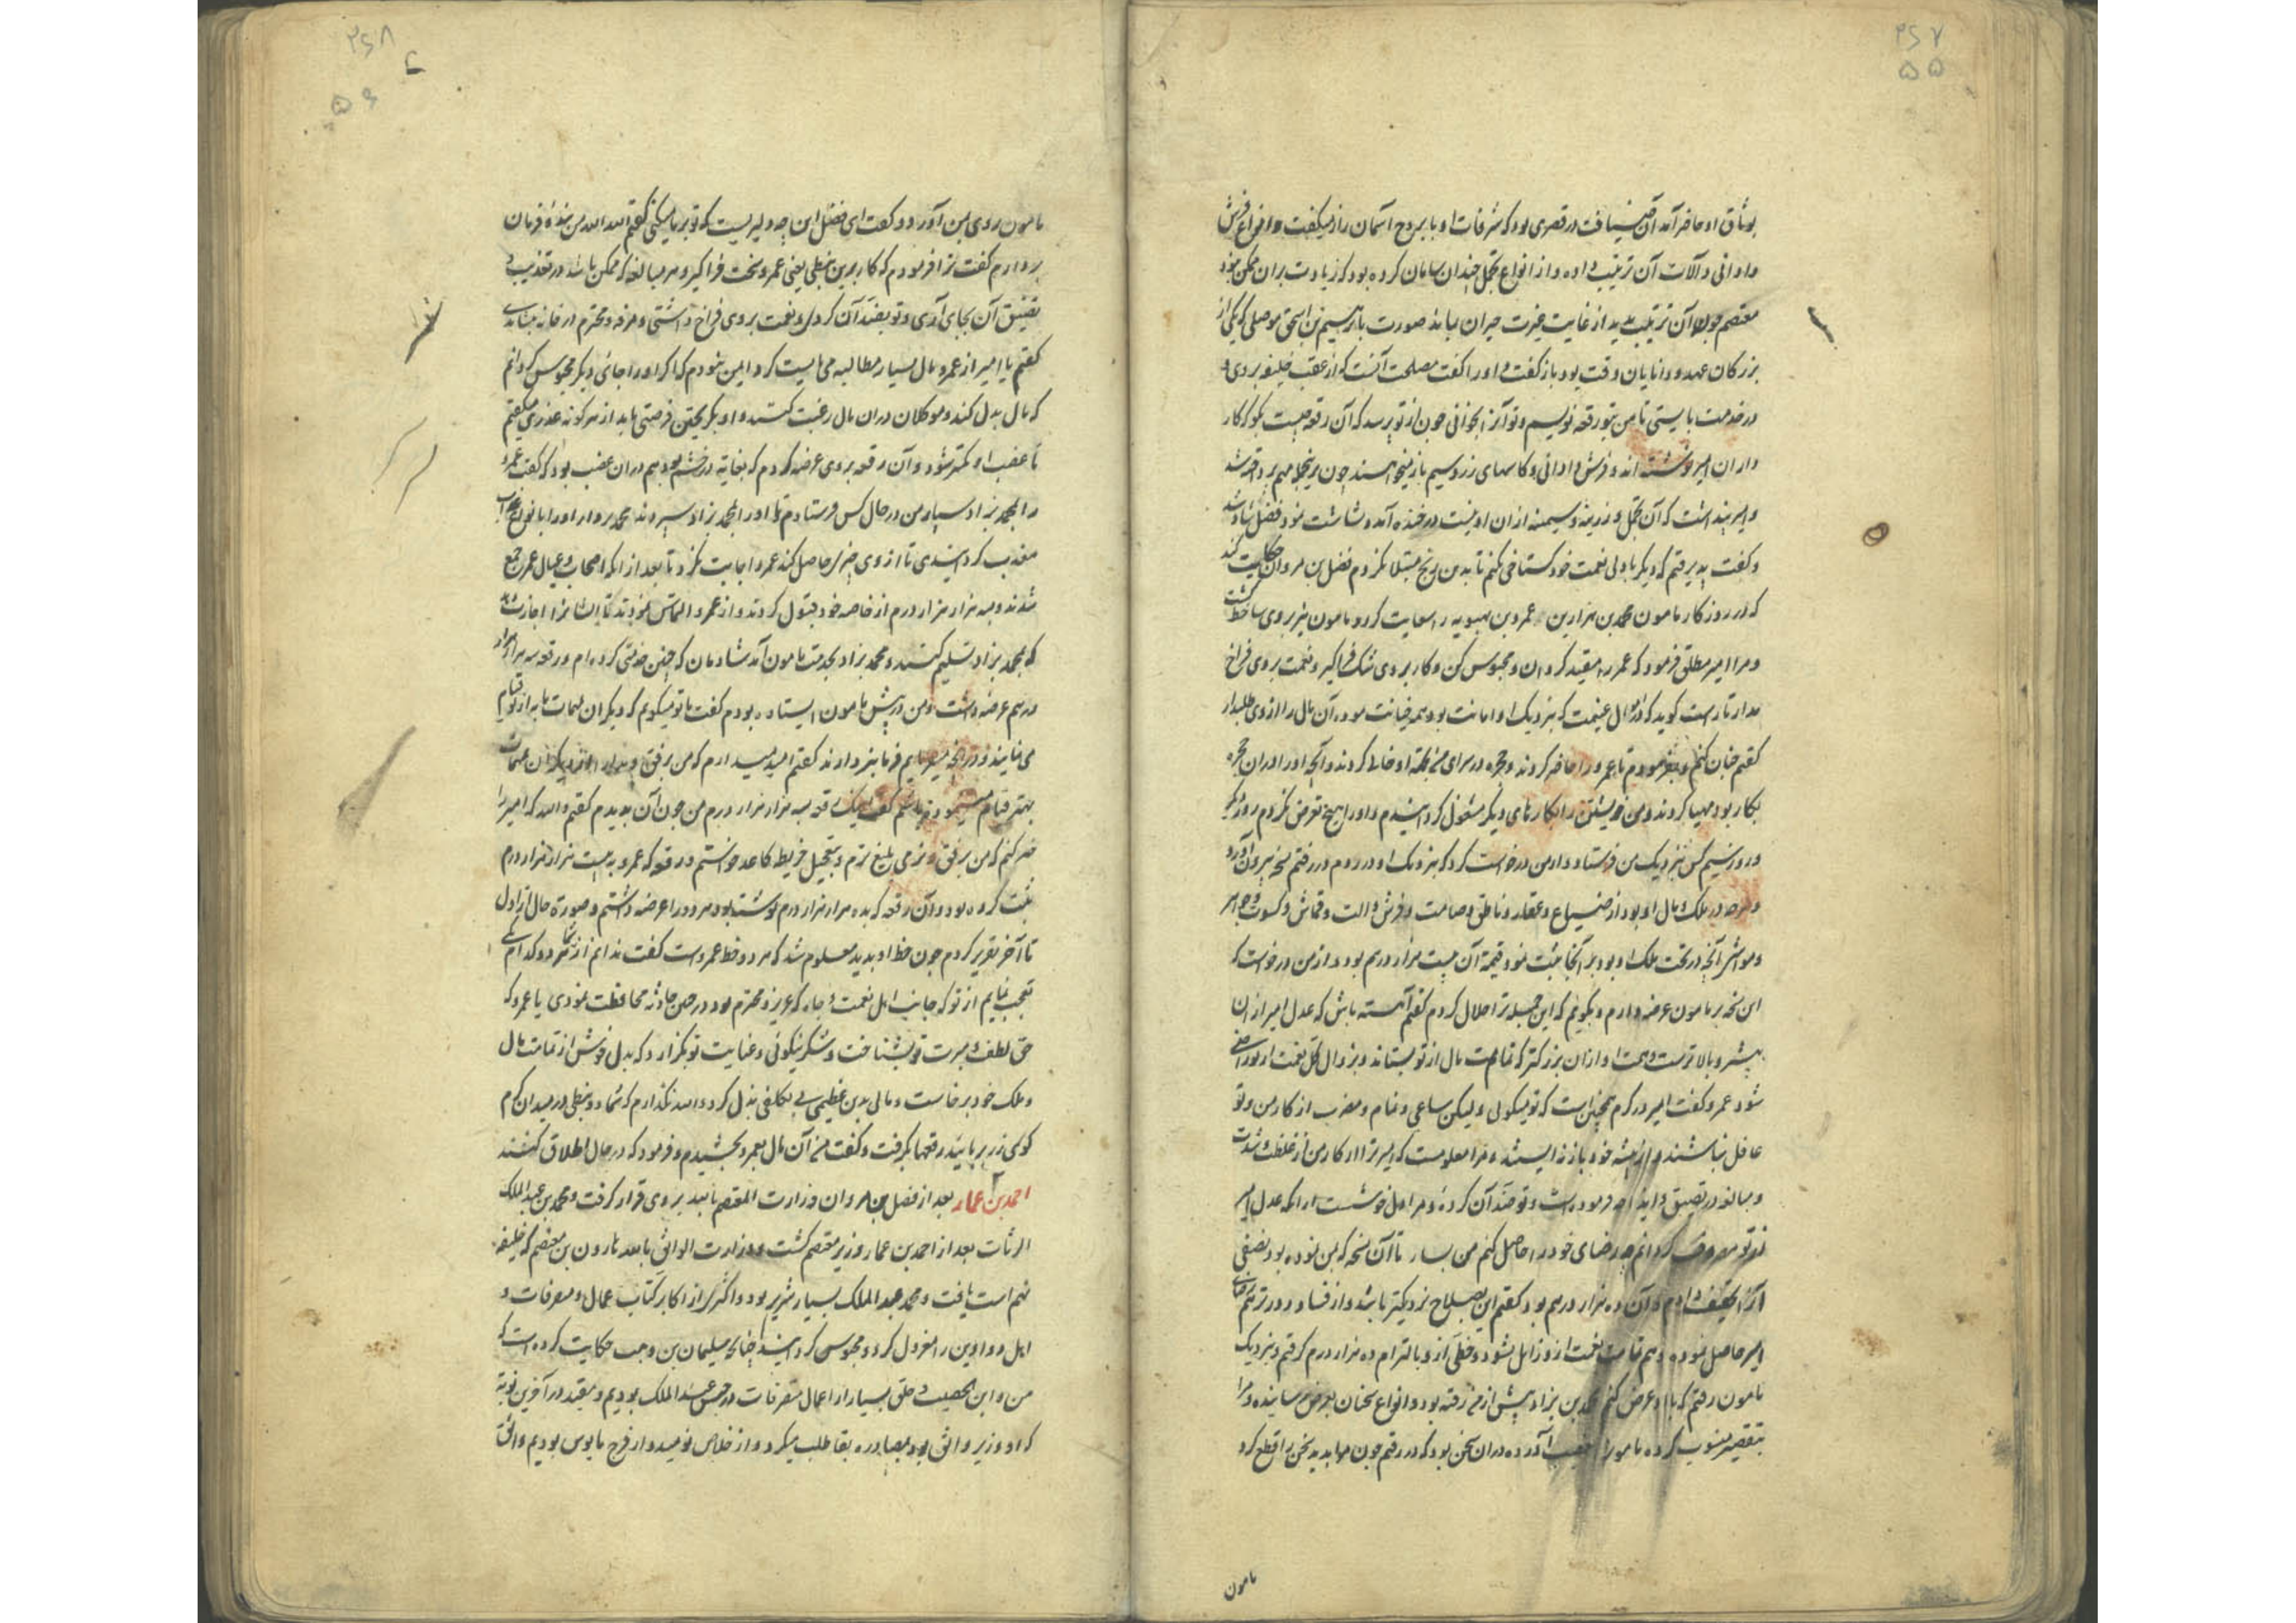 ۲۶۷
۵۵
بوثاق او حاضر آمد آن ضیافت در قصری بود که شرفات او با بروج آسمان راز میگفت و انواع فرش
و اوانی و آلات آن ترتیب داده و از انواع تجمل چندان سامان کرده بود که زیادت بران ممکن نبود
معتصم چون آن ترتیب بدید از غایت غیرت حیران بماند صورت با ابرهیم بن اسحق موصلی که یکی از
بزرکان عهد و دانایان وقت بود باز کفت و اورا کفت مصلحت آنست که از عقب خلیفه بروی و
در خدمت بایستی تا من بتو رقعه نویسم و تو آنرا بخوانی چون از تو پرسد که آن رقعه چیست بکو که کار
داران امیر نوشته اند و فرش و اوانی و کاسهای زر و سیم باز میخواهند چون برینجمله مهم بر دقعه شد
و امیر پنداشت که آن تجمل و زرینه و سیمینه ازان او نیست در خنده آمد و بشاشت نمود فضل شاد شد
و کفت پذیرفتم که دیکر با ولی نعمت خود کستاخی نکنم تا بدین رنج مبتلا نکردم فضل بن مروان حکایت کند
که در روزکار مامون محمد بن یزداد بن عمرو بن بهنویه را سعایت کرد و مامون نیز بروی ساخط کشت
و مرا امیر مطلق فرمود که عمرو را مقید کردان و محبوس کن و کار بروی تنک فراکیر و نعمت بروی فراخ
مدار تا راست کوید که از اموال غنیمت که بنزدیک او امانت بود همه خیانت نموده آن مال را از وی طلبدار
کفتم چنان کنم و بفرمودم تا عمرو را حاضر کردند و حجره در سرای من بجهة او خالی کردند و آنچه او را دران حجره
بکار بود مهیا کردند و من خویشتن را بکارهای دیکر مشغول کردانیدم و اورا هیچ تعرض نکردم روز دیکر
و روز سیم کس بنزدیک من فرستاد و از من درخواست کرد که بنزدیک او در روم در رفتم نسخه بیرون آورد
و هرچه در ملک و مال او بود از ضیاع و عقار و ناطق و صامت و فرش و الت و قماش و کسوت و جواهر
و مواشی آنچه در تحت ملک او بود بر آنجا ثبت نمود قیمة آن بیست هزار درهم بود و از من درخواست که
این نسخه بر مامون عرضه دارم و بکویم که این جمله ترا حلال کردم کفتم آهسته باش که عدل امیر ازان
بیشتر و بالاترست و همت او ازان بزرکتر که تمامت مال از تو بستاند و بزوال کل نعمت از تو راضی
شود عمرو کفت امیر در کرم همچنانست که تو میکوئی و لیکن ساعی و نمام و مضرب از کار من و تو
غافل نباشند و از پیشه خود باز نه ایستند و مرا معلومست که امیر ترا در کار من از غلظت و شدت
و مبالغه در تضییق و ایذا چه فرموده است و تو ضد آن کرده و مرا دل خوشست از انکه عدل امیر
آنرا تخفیف دادم و آن ده هزار درهم بود کفتم این بصلاح نزدیکتر باشد و از فساد دورتر هم رضای
امیر حاصل شود و هم تمامت نعمت از تو زایل نشود و خطی از و بالتزام ده هزار درم کرفتم و بنزدیک
مامون رفتم که با او عرض کنم محمد بن یزداد پیش از من رفته بود و انواع سخنان بعرض رسانیده و مرا
بتقصیر منسوب کرده مامون را بغضب آورده دران سخن بود که در رفتم چون مرا بدید سخن را قطع کرد
مامون
۲۶۸
۵۶
مامون روی بمن آورد و کفت ای فضل این چه دلیریست که تو بر ما میکنی کفتم الله الله من بنده فرمان
بردارم کفت ترا فرمودم که کار برین نبطی یعنی عمرو سخت فراکیر و هر مبالغه که ممکن باشد در تعذیب و
تضییق آن بجای آری و تو بضد آن کردی و نعمت بروی فراخ داشتی و مرفه و محترم در خانه بنشاندی
کفتم یا امیر از عمرو مال بسیار مطالبه می بایست کرد و ایمن نبودم که اکر اورا جائی دیکر محبوس کردانم
که مال بذل کند و موکلان دران مال رغبت کنند و او بکریختن فرصتی یابد از هر کونه عذری میکفتم
تا غضب او کمتر شود و آن رقعه بروی عرضه نکردم که بغایة در خشم بود هم دران غضب بود که کفت عمرو
را بمحمد یزداد سپار من در حال کس فرستادم تا اورا بمحمد یزداد سپردند محمد یزداد اورا بانواع عذاب
معذب کردانیدی تا از وی چیزی حاصل کند عمرو اجابت نکرد تا بعد از انکه اصحاب و عیال عمرو جمع
شدند و سه هزار هزار درم از خاصه خود قبول کردند و از عمرو التماس نمودند تا ایشانرا اجازت دهد
که بمحمد یزداد تسلیم کنند و محمد یزداد بخدمت مامون آمد شادمان که چنین خدمتی کرده ام و رقعه سه هزار هزار
درهم عرضه داشت و من در پیش مامون ایستاده بودم کفت ما تو میکویم که دیکران بمهمات ما به از تو قیام
می نمایند و در آنچه میفرمایم فرمانبردارند کفتم امید میدارم که من برفق و مدارا از دیکران بمهمات
بهتر قیام مینموده باشم کفت اینک رقعه سه هزار هزار درم من چون آن بدیدم کفتم والله که امیر را
خبر کنم که من برفق و نرمی بلیغ ترم و بتعجیل خریطه کاغد خواستم و رقعه که عمرو به بیست هزار هزار درم
ثبت کرده بود و آن رقعه که بده هزار هزار درم نوشته بود هر دو را عرضه داشتم و صورة حال از اول
تا آخر تقریر کردم چون خط او بدید معلوم شد که هر دو خط عمروست کفت ندانم از شما هر دو کدام
تعجب نمایم از تو که جانب اهل نعمت و جاه که عزیز و محترم بود در حین حادثه محافظت نمودی یا عمرو که
حق لطف و مبرت تو بشناخت و شکر نیکوئی و عنایت تو بکزارد که بدل خوش از تمامت مال
و ملک خود برخاست و مالی بدین عظیمی بی تکلفی بذل کرد والله نکذارم که شما دو نبطی در میدان کرم
کوی از من بربائید رقعها بکرفت و کفت من آن مال بعمرو بخشیدم و فرمود که در حال اطلاق کنند
احمد بن عمار بعد از فضل بن مروان وزارت المعتصم بالله بر وی قرار کرفت و محمد بن عبد الملک
الزیات بعد از احمد بن عمار وزیر معتصم کشت و وزارت الواثق بالله هارون بن معتصم که خلیفه
نهم است یافت و محمد عبد الملک بسیار شریر بود و اکثری از اکابر کتاب عمال و متصرفات و
اهل دواوین را معزول کرد و محبوس کردانید چنانکه سلیمان بن وهب حکایت کرده است که
من و ابن الخصیب و خلق بسیار از اعمال متصرفات در حبس عبد الملک بودیم و مقید در آخرین نوبة
که او وزیر واثق بود بمصادره بقایا طلب میکرد و از خلاص نومید و از فرج مایوس بودیم واثق